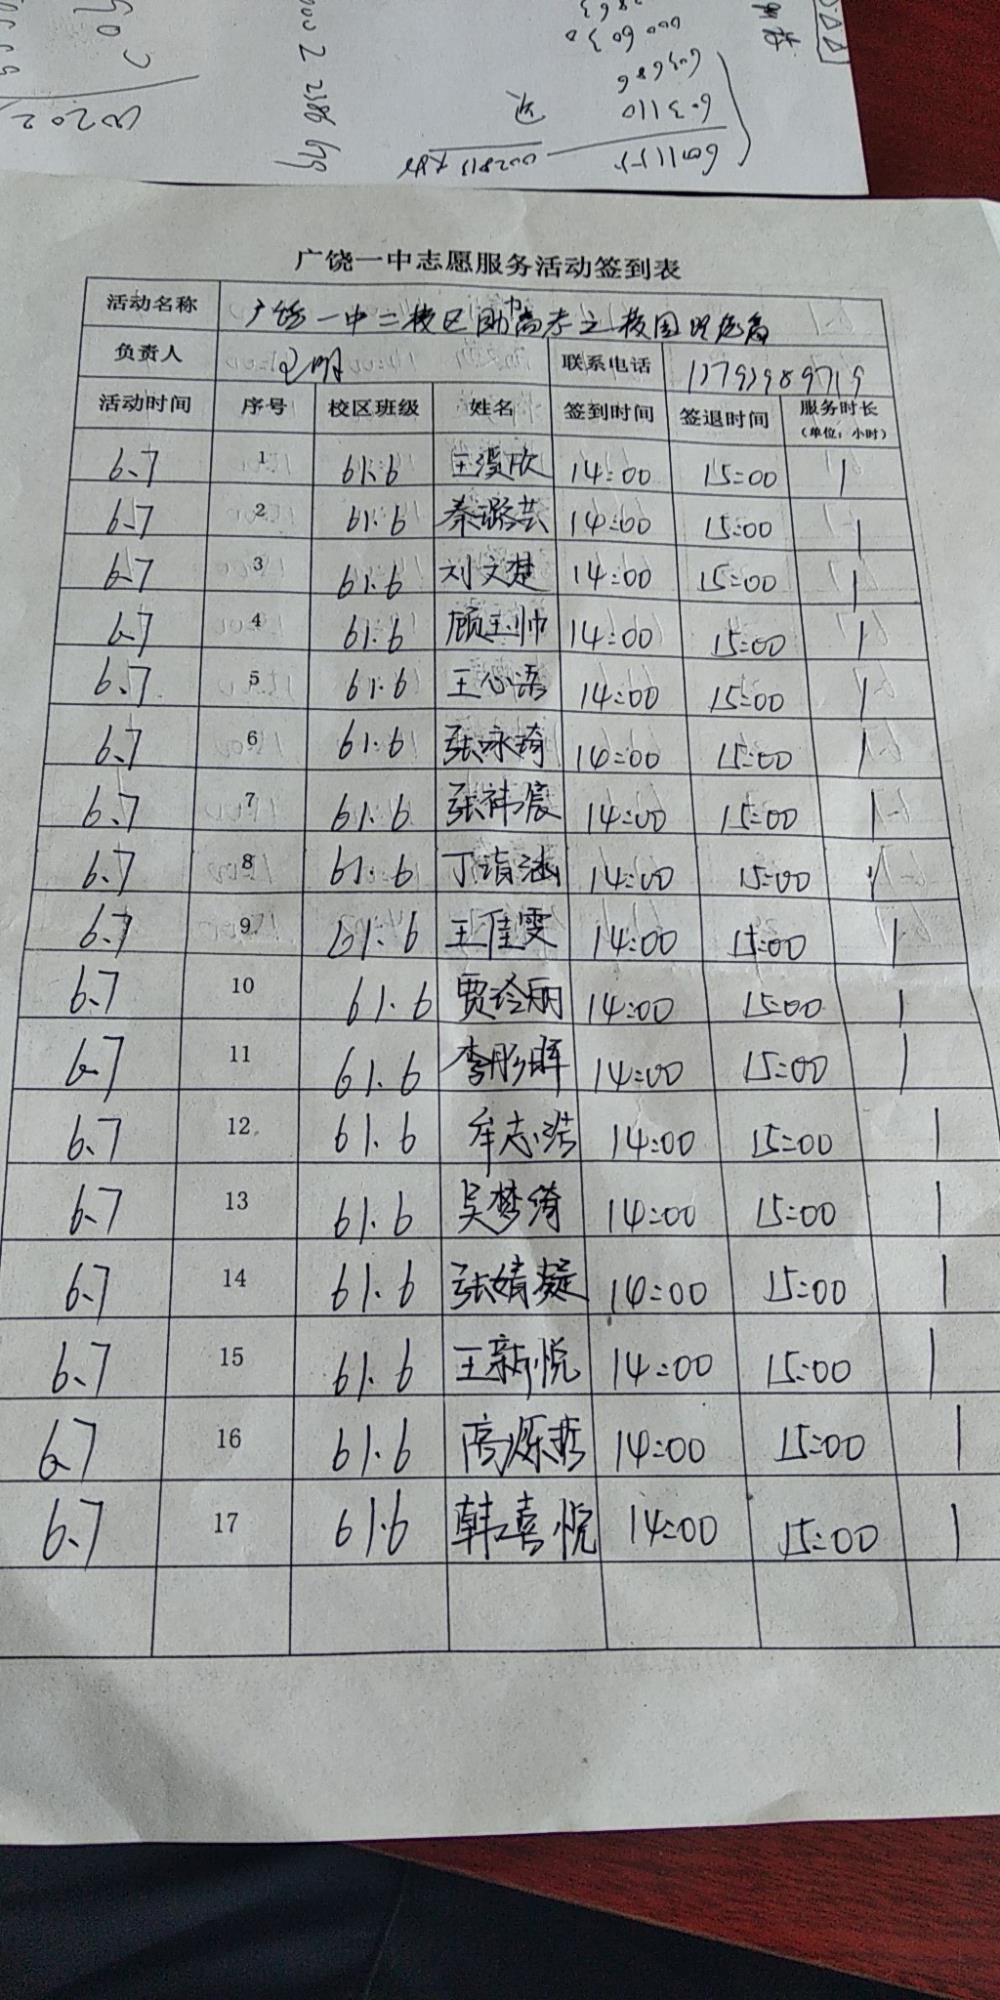 广饶一中志愿服务活动签到表
活动名称 广饶一中二校区助力高考之校园
负责人 联系电话
活动时间 序号 校区班级 姓名 签到时间 签退时间 服务时长（单位：小时）
6.7 1 61.6 王漫欣 14:00 15:00 1
6.7 2 61.6 秦璐芸 14:00 15:00 1
6.7 3 61.6 刘文楚 14:00 15:00 1
6.7 4 61.6 顾玉帅 14:00 15:00 1
6.7 5 61.6 王心语 14:00 15:00 1
6.7 6 61.6 张咏琦 14:00 15:00 1
6.7 7 61.6 张祎宸 14:00 15:00 1
6.7 8 61.6 丁涵 14:00 15:00 1
6.7 9 61.6 王佳雯 14:00 15:00 1
6.7 10 61.6 贾玲丽 14:00 15:00 1
6.7 11 61.6 李彤晖 14:00 15:00 1
6.7 12 61.6 牟志浩 14:00 15:00 1
6.7 13 61.6 吴梦绮 14:00 15:00 1
6.7 14 61.6 张婧凝 14:00 15:00 1
6.7 15 61.6 王新悦 14:00 15:00 1
6.7 16 61.6 高烁哲 14:00 15:00 1
6.7 17 61.6 韩喜悦 14:00 15:00 1